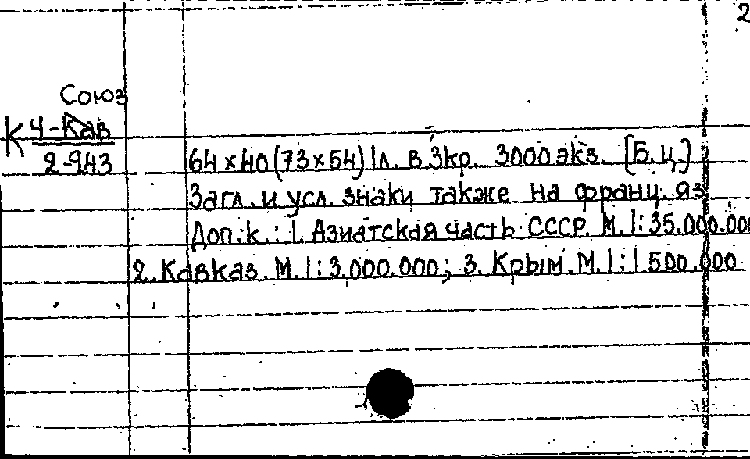 2
Союз
К 4-Кав
2-943
64×40(73×54) 1л. в 3кр. 3000 экз. [Б.ц.]
Загл. и усл. знаки также на франц. яз
Доп.к.: 1. Азиатская часть СССР. М. 1:35.000.000
2. Кавказ. М. 1:3.000.000; 3. Крым. М. 1:1 500.000